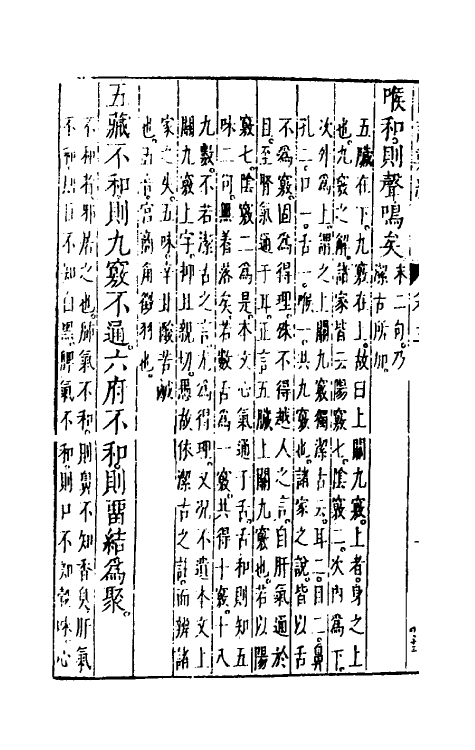 喉和則聲鳴矣末二句乃潔古所加
五臟在下九竅在上故曰上關九竅上者身之上
也九竅之解諸家皆云陽竅七陰竅二次內為下
次外為上謂之上關九竅獨潔古云耳二目二鼻
孔二口一舌一喉一共九竅也諸家之說皆以舌
不為竅固為得理殊不得越人之言自肝氣通於
目至腎氣通于耳正言五臟上關九竅也若以陽
竅七陰竅二為是本文心氣通于舌舌和則知五
味二句無着落矣若數舌為一竅共得十竅十入
九數不若潔古之言尤為得理又況不遺本文上
關九竅上字抑且親切愚故依潔古之註而辨諸
家之失五味辛甘酸苦鹹
也五音宮商角徵羽也
五藏不和則九竅不通六府不和則留結為聚
不和者邪居之也肺氣不和則鼻不知香臭肝氣
不和則目不知白黑脾氣不和則口不知穀味心